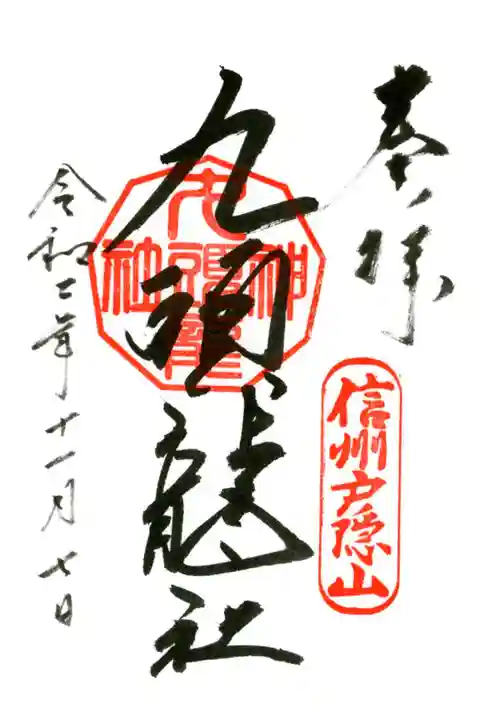 奉拝
信州戸隠山
九頭龍社
令和二年十一月七日